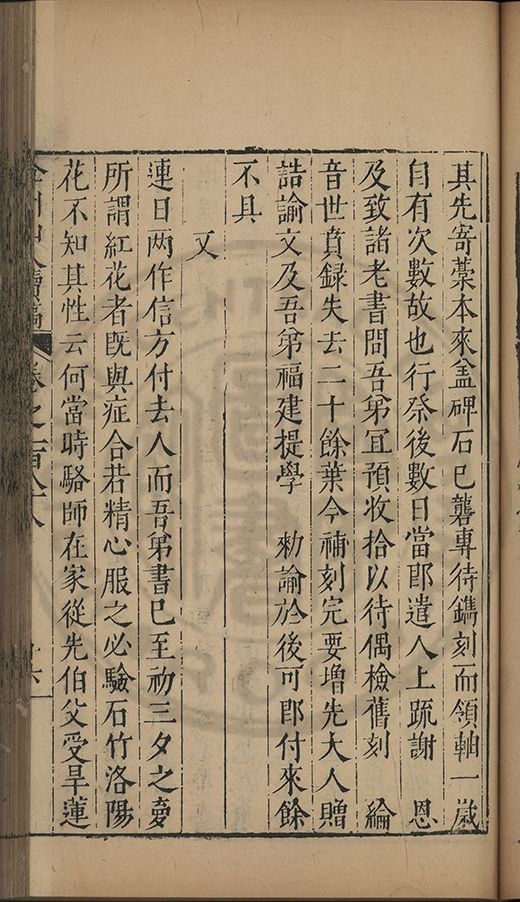 其先寄藁本來盖碑石已礱專待鐫刻而領軸一歲
自有次數故也行祭後數日當即遣人上疏謝　恩
及致諸老書問吾弟宜預收拾以待偶檢舊刻　綸
音世賁録失去二十餘葉今補刻完要增先大人贈
誥諭文及吾弟福建提學　勅諭於後可即付來餘
不具
又
連日两作信方付去人而吾弟書已至初三夕之夢
所謂紅花者既與症合若精心服之必驗石竹洛陽
花不知其性云何當時駱師在家從先伯父受旱蓮
卷之一百八十八